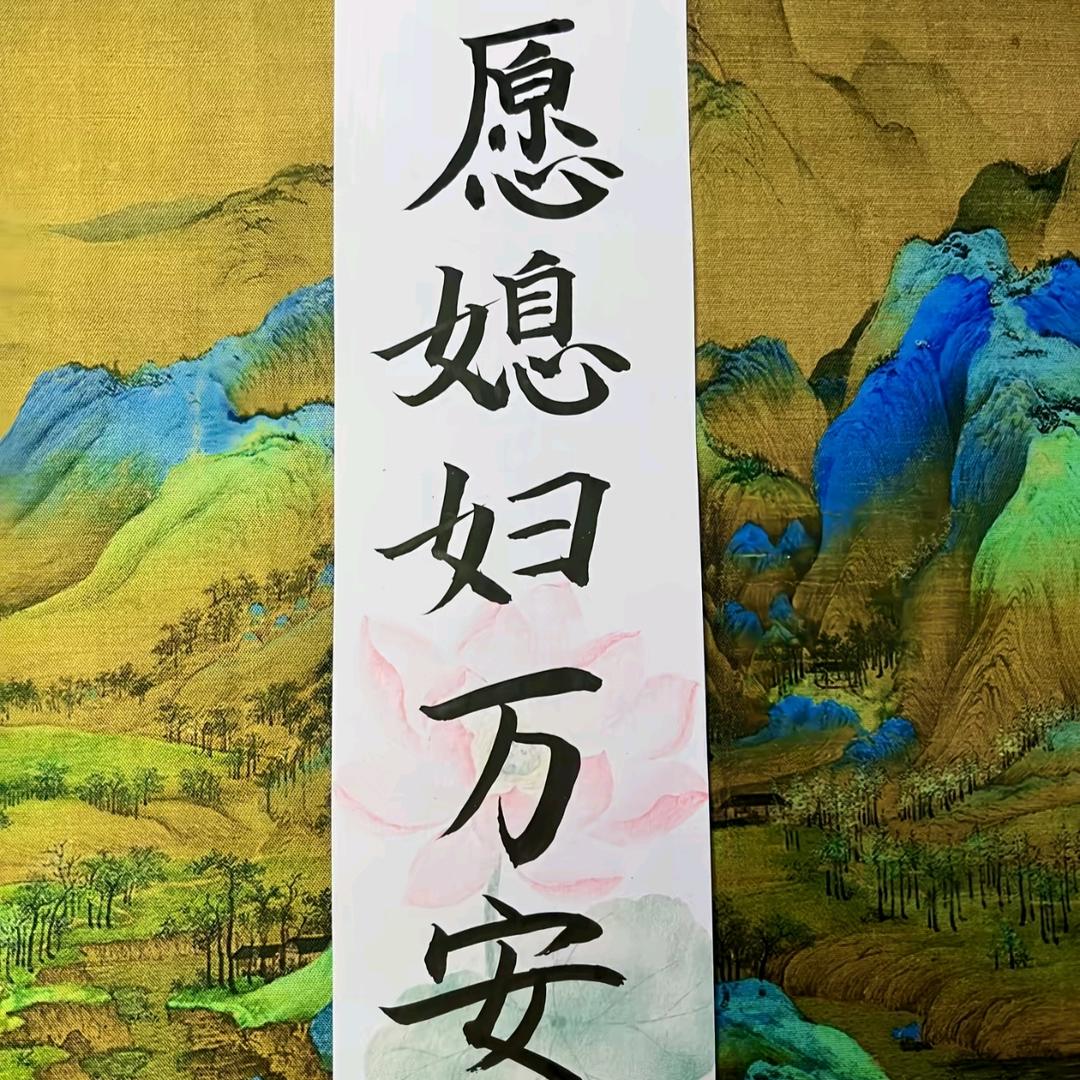 愿媳妇万安